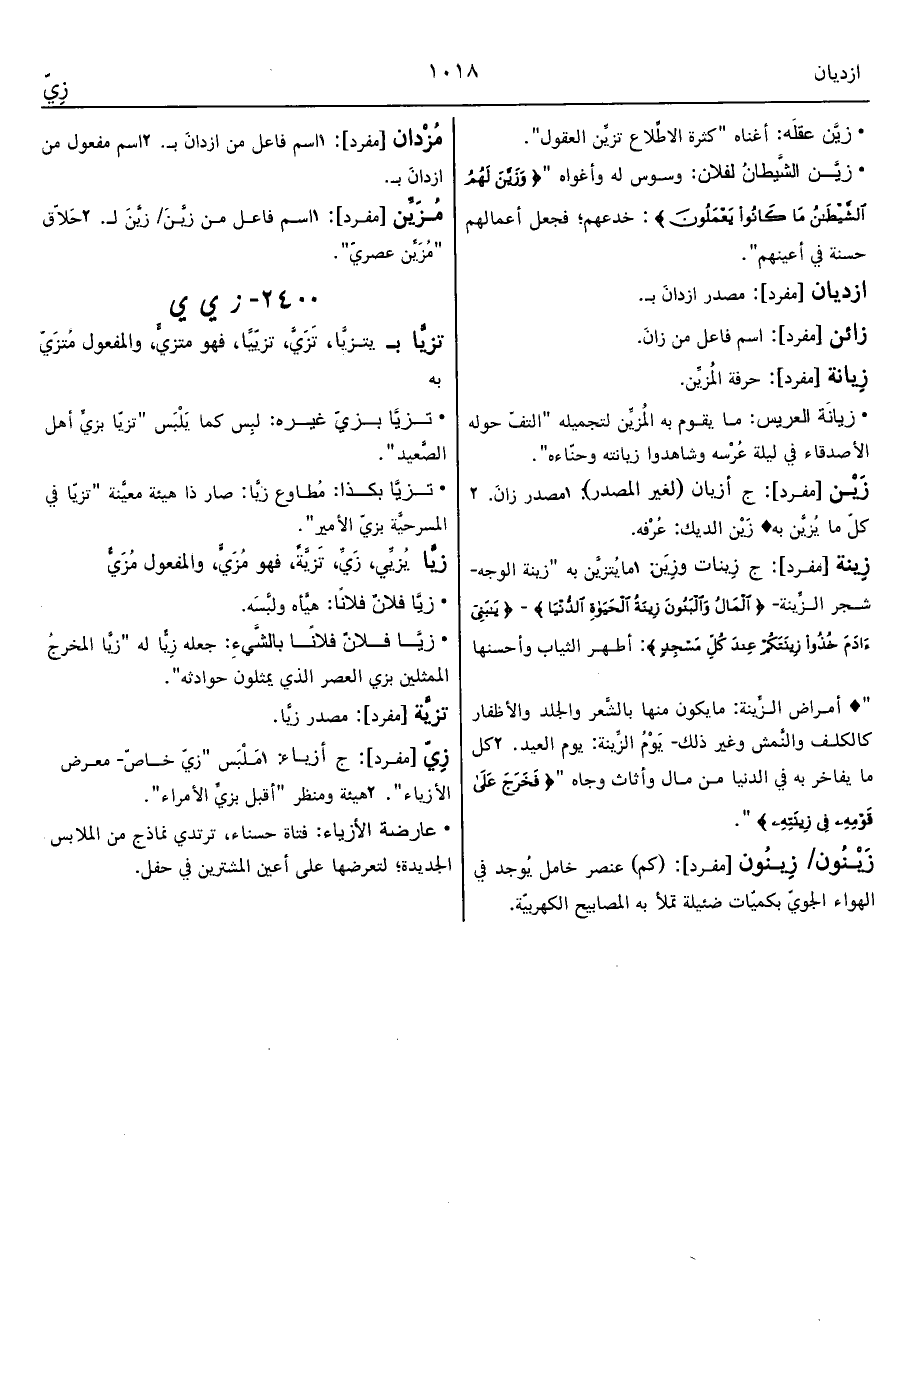 ازديان
١٠١٨
زِيّ
• زيَّن عقلَه: أغناه "كثرة الاطِّلاع تزيِّن العقول".
• زيَّـن الشَّيطانُ لفلان: وسوس له وأغواه "﴿ وَزَيَّنَ لَهُمُ
ٱلشَّيْطَٰنُ مَا كَانُوا۟ يَعْمَلُونَ ﴾ : خدعهم؛ فجعل أعمالهم
حسنة في أعينهم".
ازديان [مفرد]: مصدر ازدانَ بـ.
زائن [مفرد]: اسم فاعل من زانَ.
زِيانة [مفرد]: حرفة المُزيِّن.
• زيانَة العريس: مـا يقـوم به المُزيِّن لتجميله "التفّ حوله
الأصدقاء في ليلة عُرْسه وشاهدوا زيانته وحنّاءه".
زَيْـن [مفرد]: ج أزيان (لغير المصدر): ١مصدر زانَ. ٢
كلّ ما يُزيَّن به♦ زَيْن الديك: عُرْفه.
زِينة [مفرد]: ج زِينات وزِيَن: ١مايُتزيَّن به "زينة الوجه-
شـجر الـزِّينة- ﴿ ٱلْمَالُ وَٱلْبَنُونَ زِينَةُ ٱلْحَيَوٰةِ ٱلدُّنْيَا ﴾ - ﴿ يَٰبَنِىٓ
ءَادَمَ خُذُوا۟ زِينَتَكُمْ عِندَ كُلِّ مَسْجِدٍ ﴾: أطـهر الثياب وأحسنها
"♦ أمـراض الـزِّينة: مايكون منها بالشَّعر والجلد والأظفار
كالكلـف والنَّمش وغير ذلك- يَوْمُ الزِّينة: يوم العيد. ٢كل
ما يفاخر به في الدنيا مـن مـال وأثاث وجاه "﴿ فَخَرَجَ عَلَىٰ
قَوْمِهِۦ فِى زِينَتِهِۦ ﴾ ".
زَيْـنُون/ زِيـنُون [مفـرد]: (كم) عنصر خامل يُوجد في
الهواء الجويّ بكميّات ضئيلة تملأ به المصابيح الكهربيّة.
مُزْدان [مفرد]: ١اسم فاعل من ازدانَ بـ. ٢اسم مفعول من
ازدانَ بـ.
مُـزَيِّن [مفرد]: ١اسم فاعـل مـن زيَّـنَ/ زيَّنَ لـ. ٢حَلاّق
"مُزَيِّن عصريّ".
٢٤٠٠- ز ي ي
تزيَّا بـ يتـزيَّا، تَزَيَّ، تزيّيًا، فهو متزيٍّ، والمفعول مُتزَيّ
به
• تـزيَّا بـزيّ غيـره: لبِس كما يَلْبَس "تزيّا بزيِّ أهل
الصَّعيد".
• تـزيَّا بكـذا: مُطـاوع زيَّا: صار ذا هيئة معيَّنة "تزيّا في
المسرحيَّة بزيّ الأمير".
زيَّا يُزيِّي، زَيِّ، تَزيَّةً، فهو مُزَيٍّ، والمفعول مُزَيًّ
• زيَّا فلانٌ فلانًا: هيَّأه ولبَّسَه.
• زيَّـا فـلانٌ فلانًـا بالشَّيءِ: جعله زِيًّا له "زيَّا المخرجُ
الممثلين بزي العصر الذي يمثلون حوادثه".
تزيَّة [مفرد]: مصدر زيَّا.
زِيّ [مفـرد]: ج أزيـاء: ١مَـلْبَس "زيّ خـاصّ- معـرض
الأزياء". ٢هيئة ومنظر "أقبل بزيِّ الأمراء".
• عارضة الأزياء: فتاة حسناء، ترتدي نماذج من الملابس
الجديدة؛ لتعرضها على أعين المشترين في حفل.